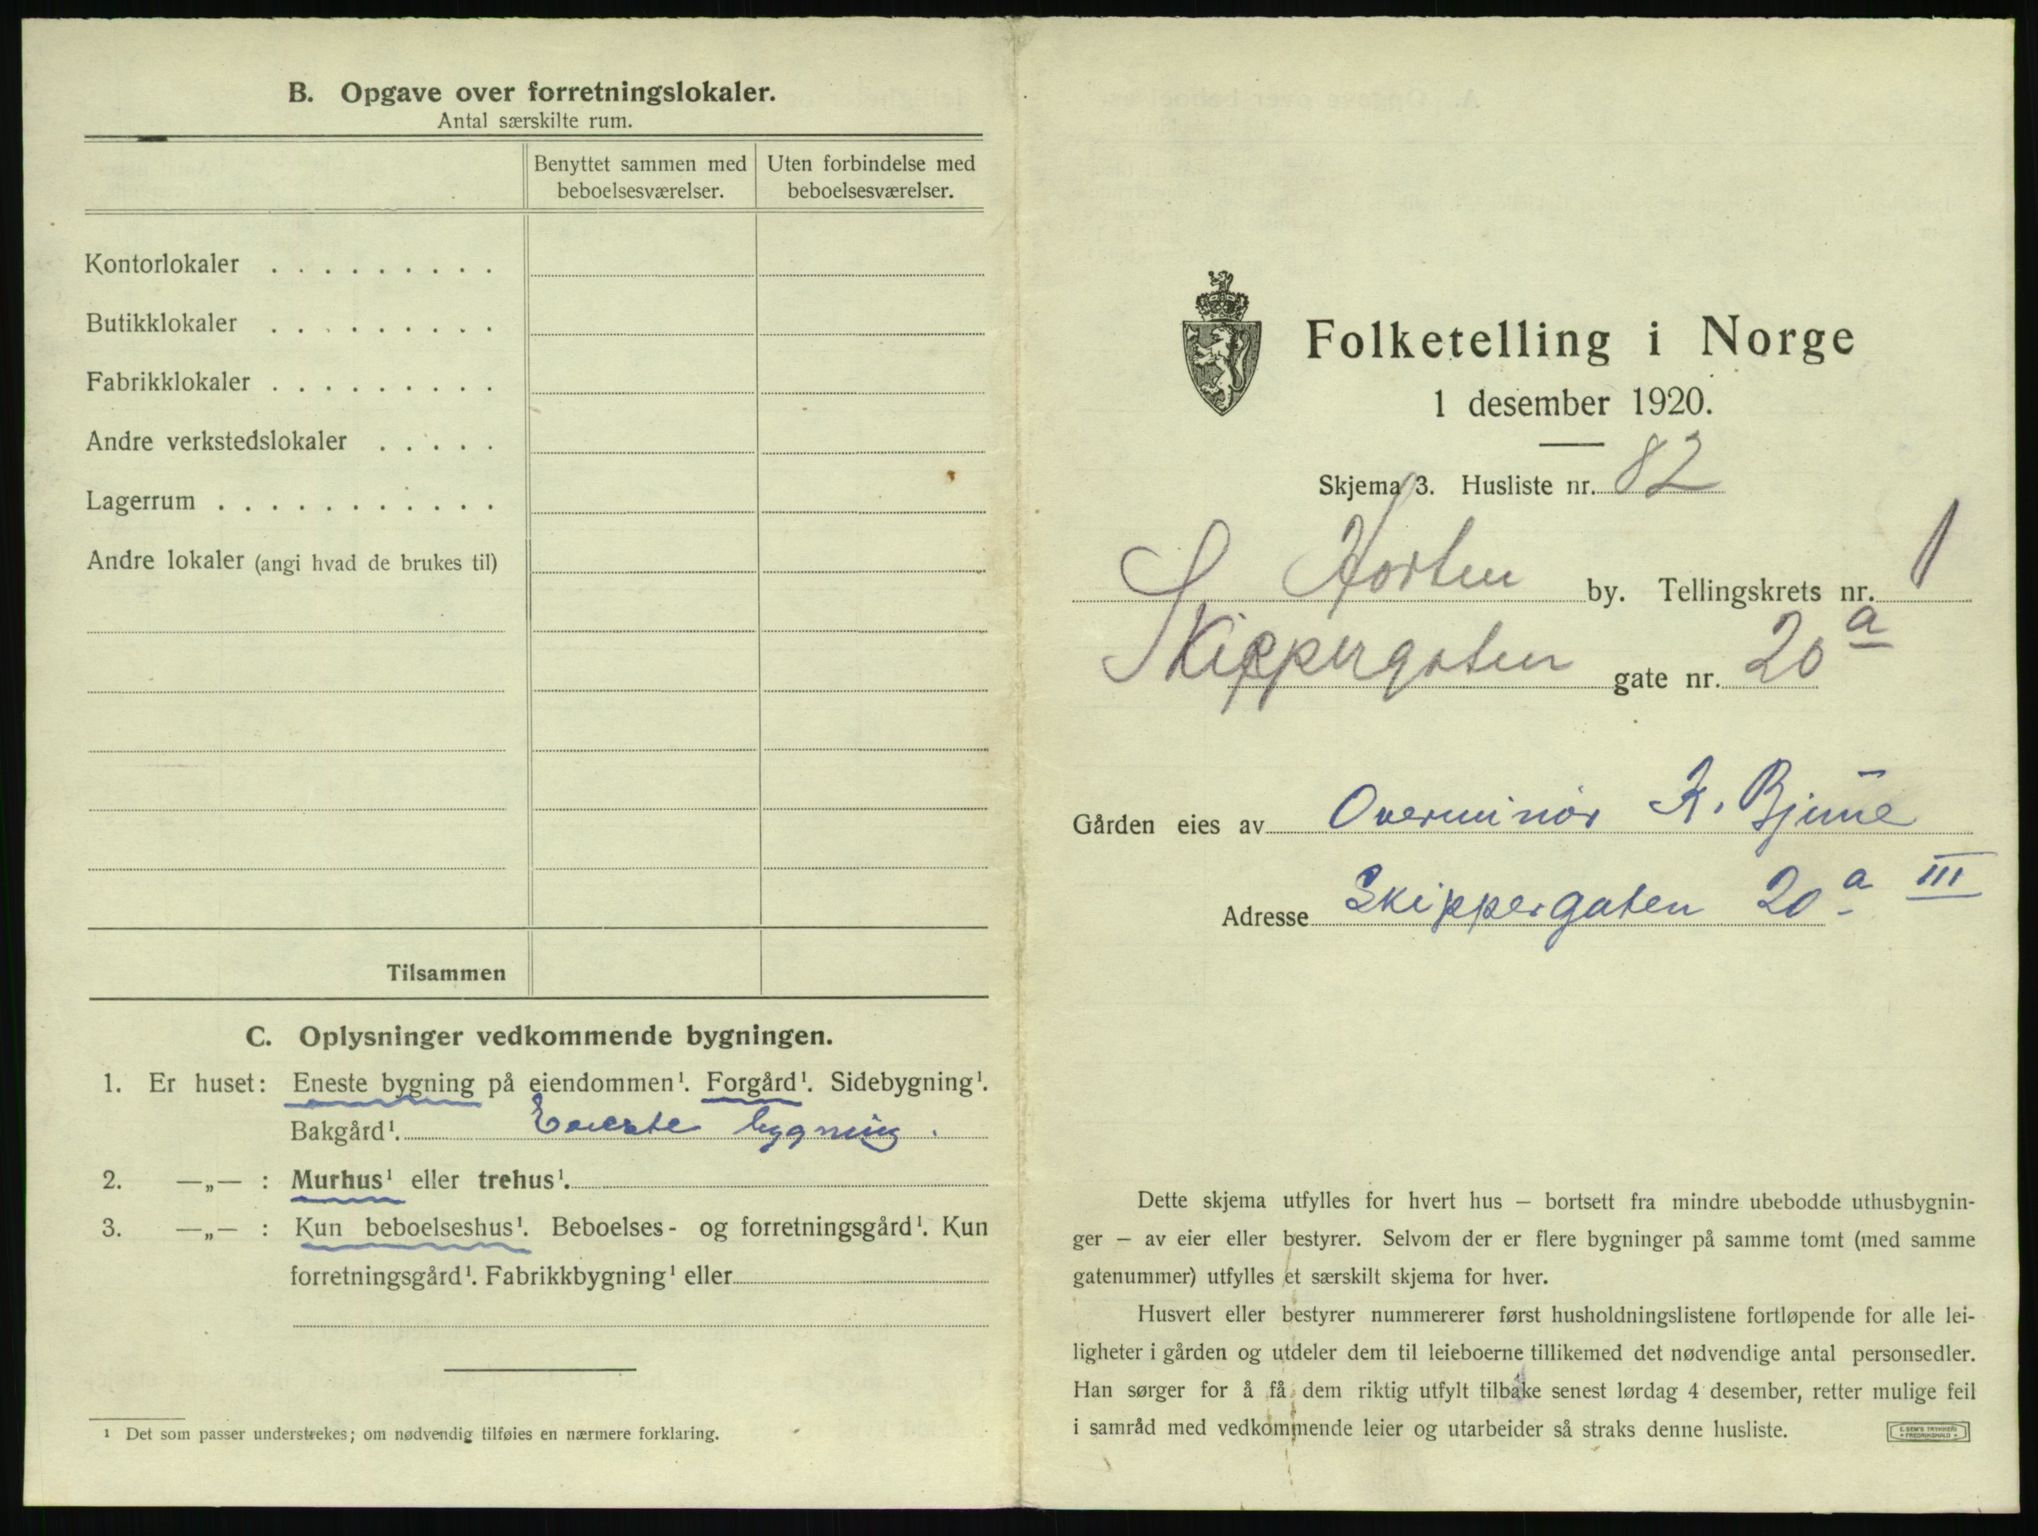 B. Opgave over forretningslokaler.
Antal særskilte rum.
Benyttet sammen med beboelsesværelser.
Uten forbindelse med beboelsesværelser.
Kontorlokaler . . . . . . . . .
Butikklokaler . . . . . . . . .
Fabrikklokaler . . . . . . . . .
Andre verkstedslokaler . . . . .
Lagerrum . . . . . . . . . . .
Andre lokaler (angi hvad de brukes til)
Tilsammen
C. Oplysninger vedkommende bygningen.
1. Er huset: Eneste bygning på eiendommen¹. Forgård¹. Sidebygning¹.
Bakgård¹. Eneste bygning.
2. —„— : Murhus¹ eller trehus¹.
3. —„— : Kun beboelseshus¹. Beboelses- og forretningsgård¹. Kun
forretningsgård¹. Fabrikkbygning¹ eller
¹ Det som passer understrekes; om nødvendig tilføies en nærmere forklaring.
Folketelling i Norge
1 desember 1920.
Skjema 3. Husliste nr. 82
Horten by. Tellingskrets nr. 1
Skippergaten gate nr. 20a
Gården eies av Overminør K. Bjune
Adresse Skippergaten 20a III
Dette skjema utfylles for hvert hus — bortsett fra mindre ubebodde uthusbygnin-
ger — av eier eller bestyrer. Selvom der er flere bygninger på samme tomt (med samme
gatenummer) utfylles et særskilt skjema for hver.
Husvert eller bestyrer nummererer først husholdningslistene fortløpende for alle lei-
ligheter i gården og utdeler dem til leieboerne tillikemed det nødvendige antal personsedler.
Han sørger for å få dem riktig utfylt tilbake senest lørdag 4 desember, retter mulige feil
i samråd med vedkommende leier og utarbeider så straks denne husliste.
E. SEM'S TRYKKERI
FREDRIKSHALD